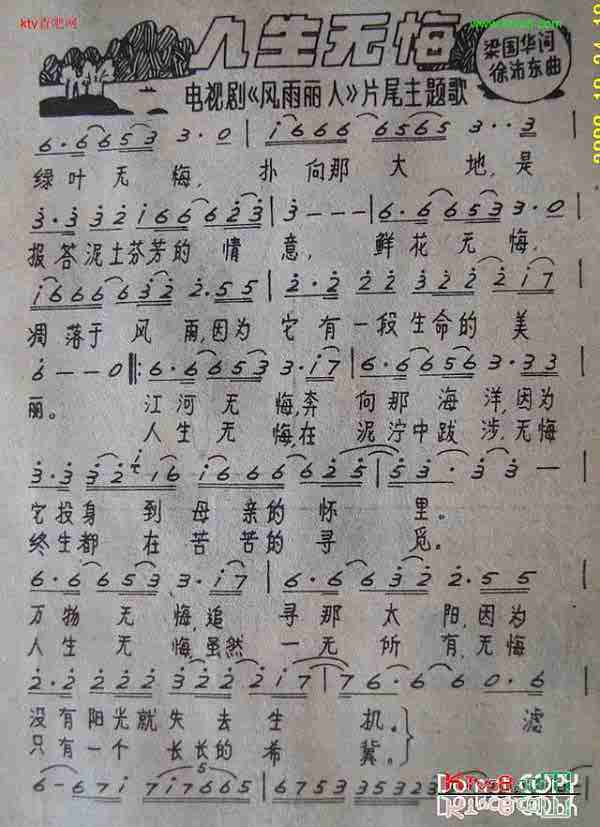 ktv直吧网
人生无悔
梁国华词
徐沛东曲
电视剧《风雨丽人》片尾主题歌
6·66653 3·0 | i666 6565 3·3 |
绿叶无悔，扑向那大地，是
3·3 32i666623 | 3--- | 6·66653 3·0 |
报答泥土芬芳的情意，鲜花无悔，
i666632 2·55 | 2·2 22 322 2i7 |
凋落于风雨，因为它有一段生命的美
6--0 ‖: 6·66653 3·i7 | 6·6656 3·33 |
丽。江河无悔，奔向那海洋，因为
人生无悔，在泥泞中跋涉，无悔
3·3 32i16 i666625 | 53·33— |
它投身到母亲的怀里。
终生都在苦苦的寻觅。
6·66653 3·i7 | 6·6632 2·55 |
万物无悔，追寻那太阳，因为
人生无悔，虽然一无所有，无悔
2·222322 2i7 | 76·660·6 |
没有阳光就失去生机。滤
只有一个长长的希冀。
6-67i 7i7665 | 6753 35323